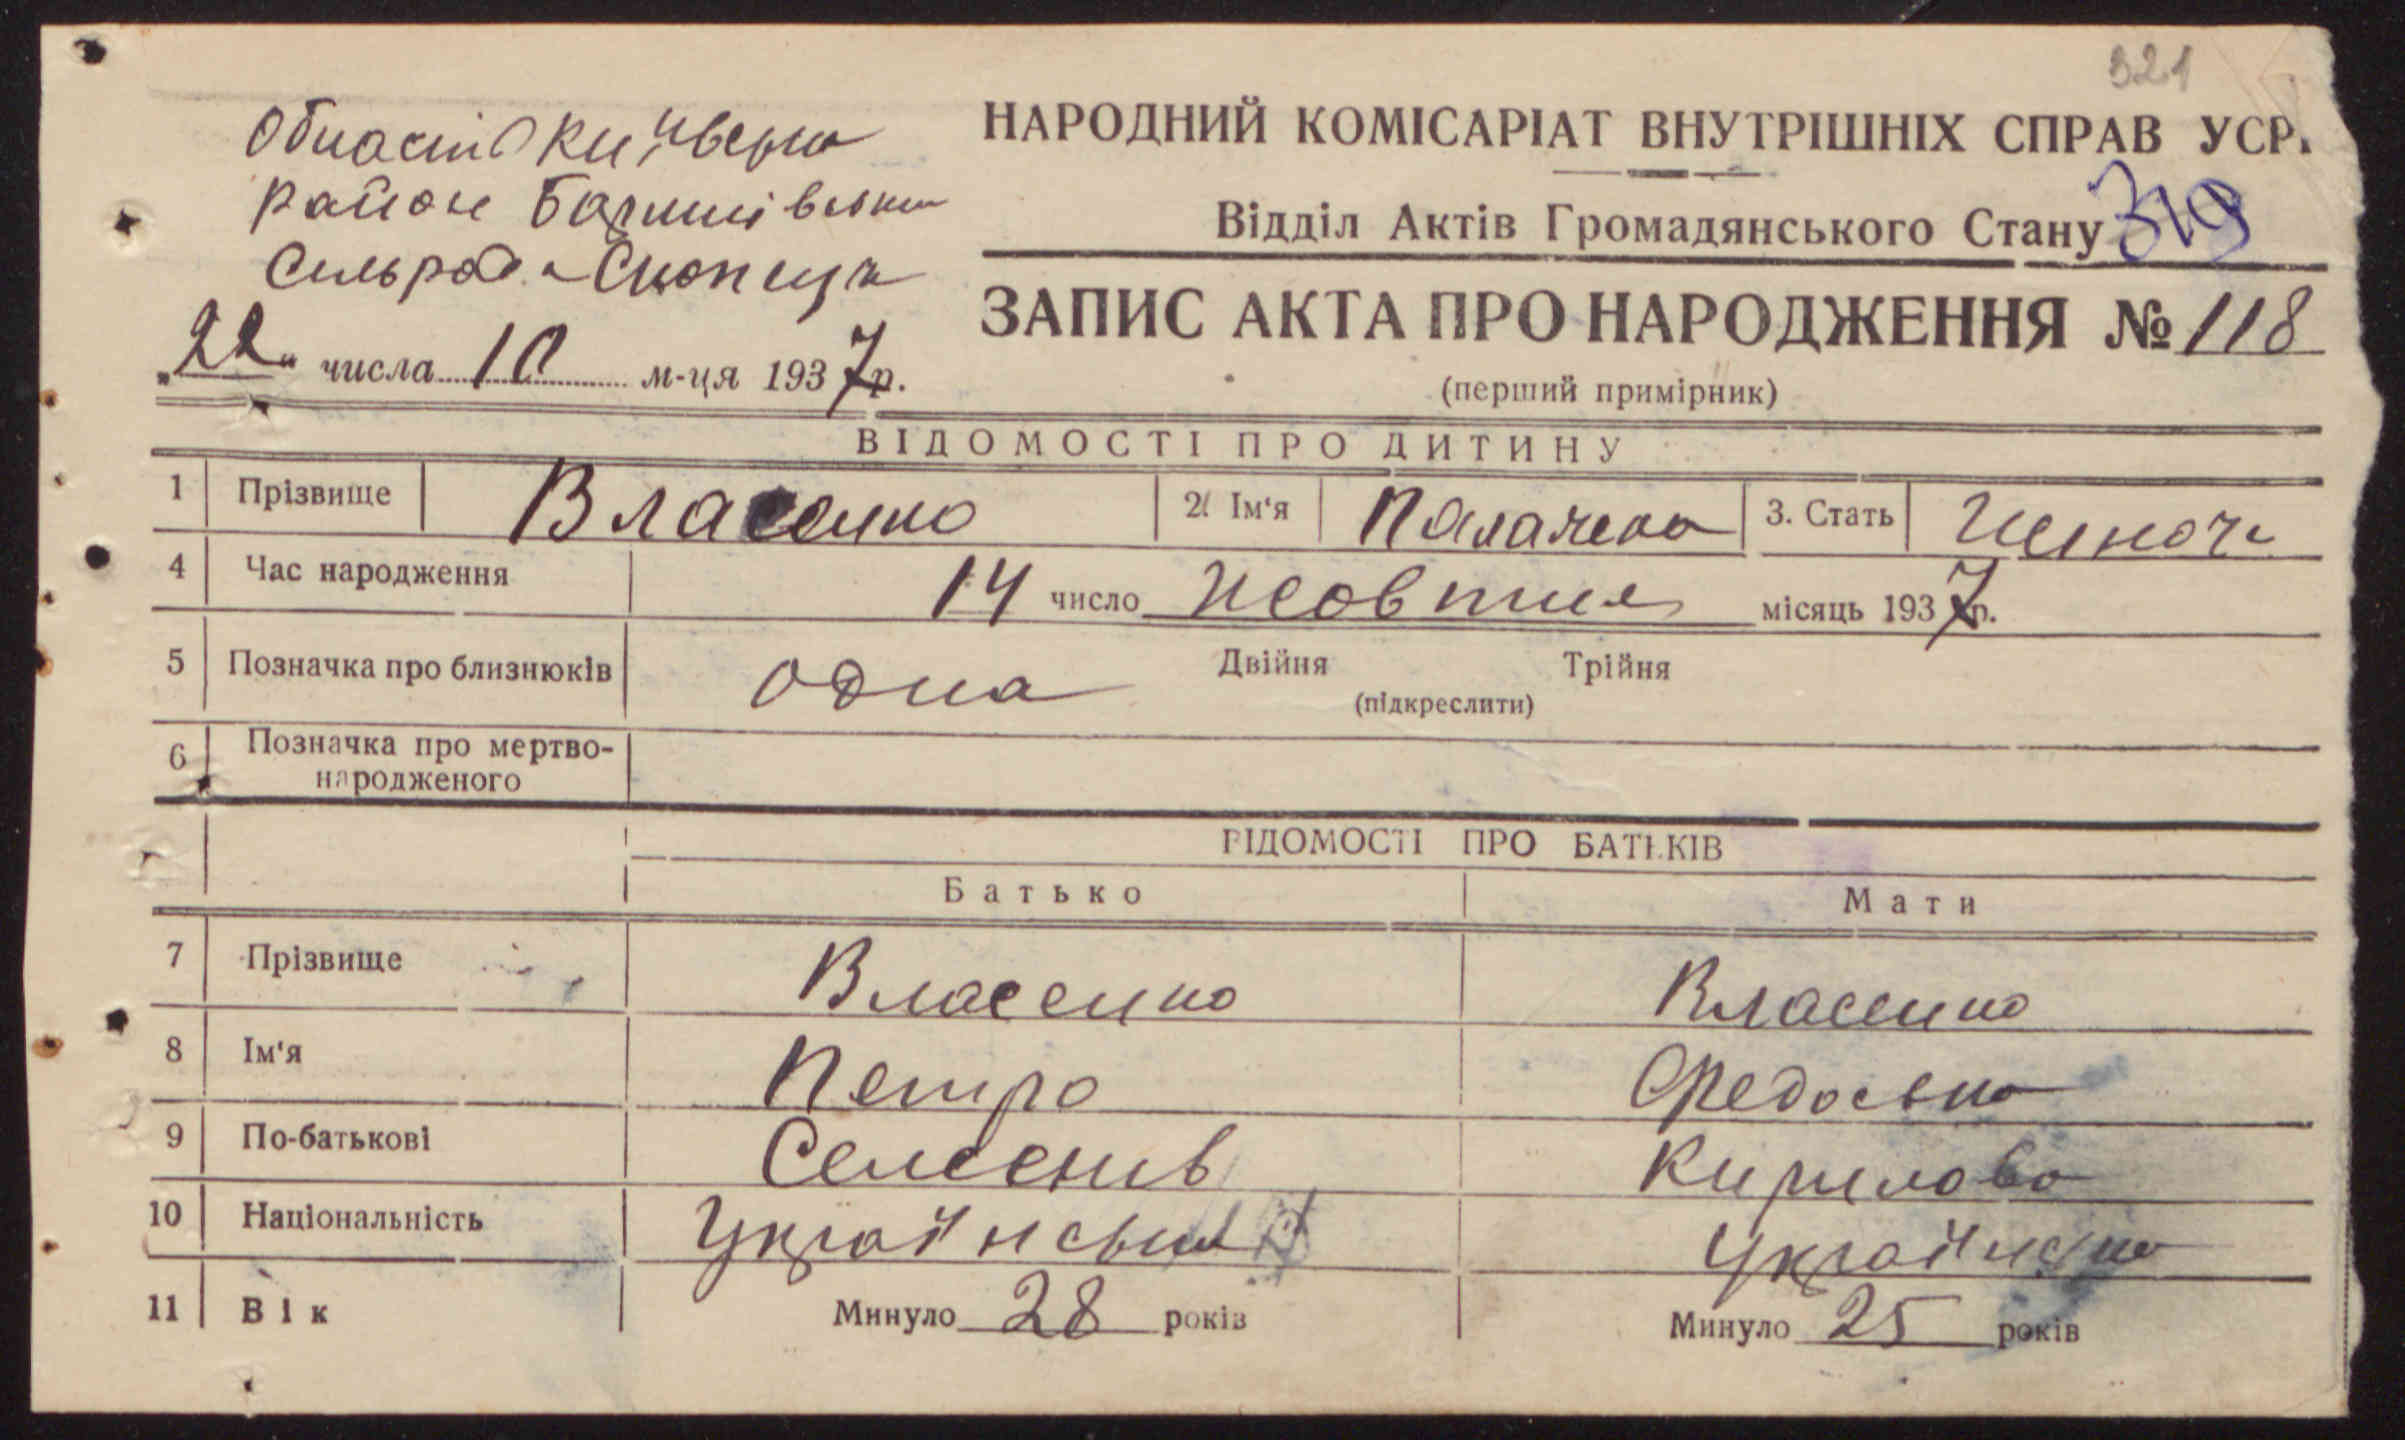 321
Область Київська
НАРОДНИЙ КОМІСАРІАТ ВНУТРІШНІХ СПРАВ УСР
Район Баришівськи
Відділ Актів Громадянського Стану 319
Сільрада Скопецьк
ЗАПИС АКТА ПРО НАРОДЖЕННЯ № 118
„22“ числа 10 м-ця 1937 р.
(перший примірник)
ВІДОМОСТІ ПРО ДИТИНУ
1 Прізвище Власенко 2. Ім'я 3. Стать Жіноч
4 Час народження 14 число Жовтня місяць 1937 р.
5 Позначка про близнюків одна Двійня Трійня
(підкреслити)
6 Позначка про мертво-
народженого
ВІДОМОСТІ ПРО БАТЬКІВ
Батько Мати
7 Прізвище Власенко Власенко
8 Ім'я Петро Федоська
9 По-батькові Семенів Кирилова
10 Національність Українськ Українська
11 Вік Минуло 28 років Минуло 25 років